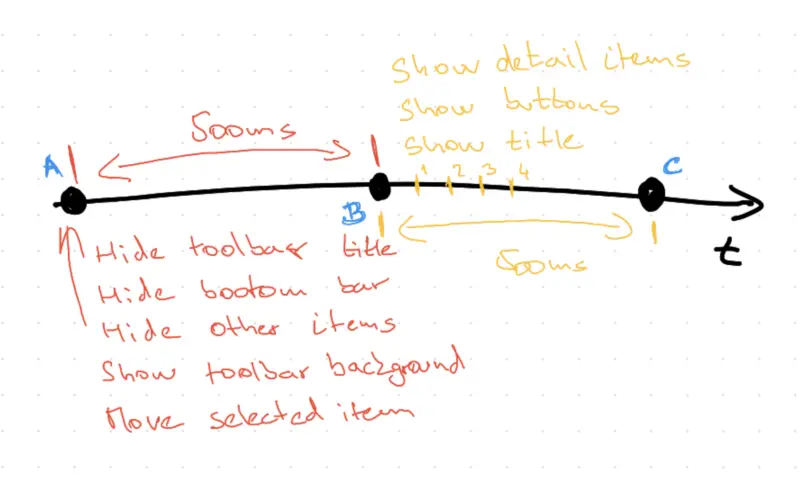 Show detail items
Show buttons
Show title
500ms
1 2 3 4
A
B
C
500ms
t
Hide toolbar title
Hide bootom bar
Hide other items
Show toolbar background
Move selected item